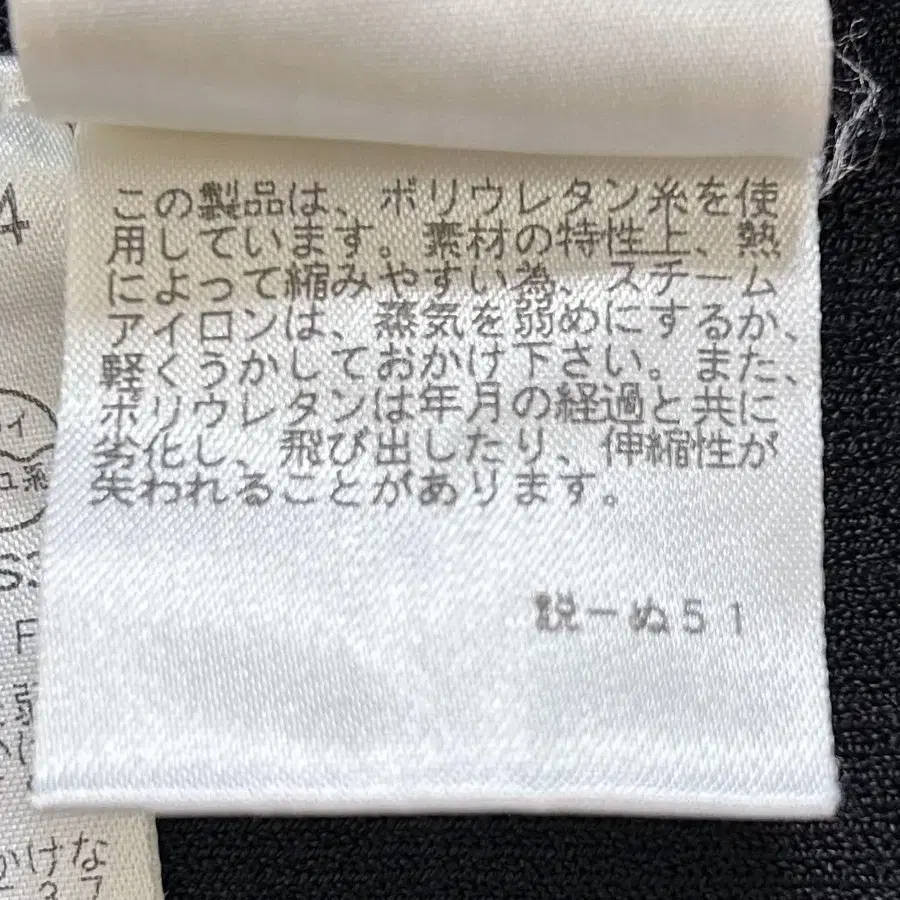 この製品は、ポリウレタン糸を使
用しています。素材の特性上、熱
によって縮みやすい為、スチーム
アイロンは、蒸気を弱めにするか、
軽くうかしておかけ下さい。また、
ポリウレタンは年月の経過と共に
劣化し、飛び出したり、伸縮性が
失われることがあります。
説ーぬ51
4
イ
F
弱
かけな